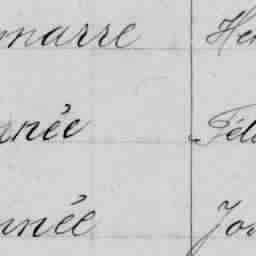 marre Hen
rnée Féli
nnée Jos